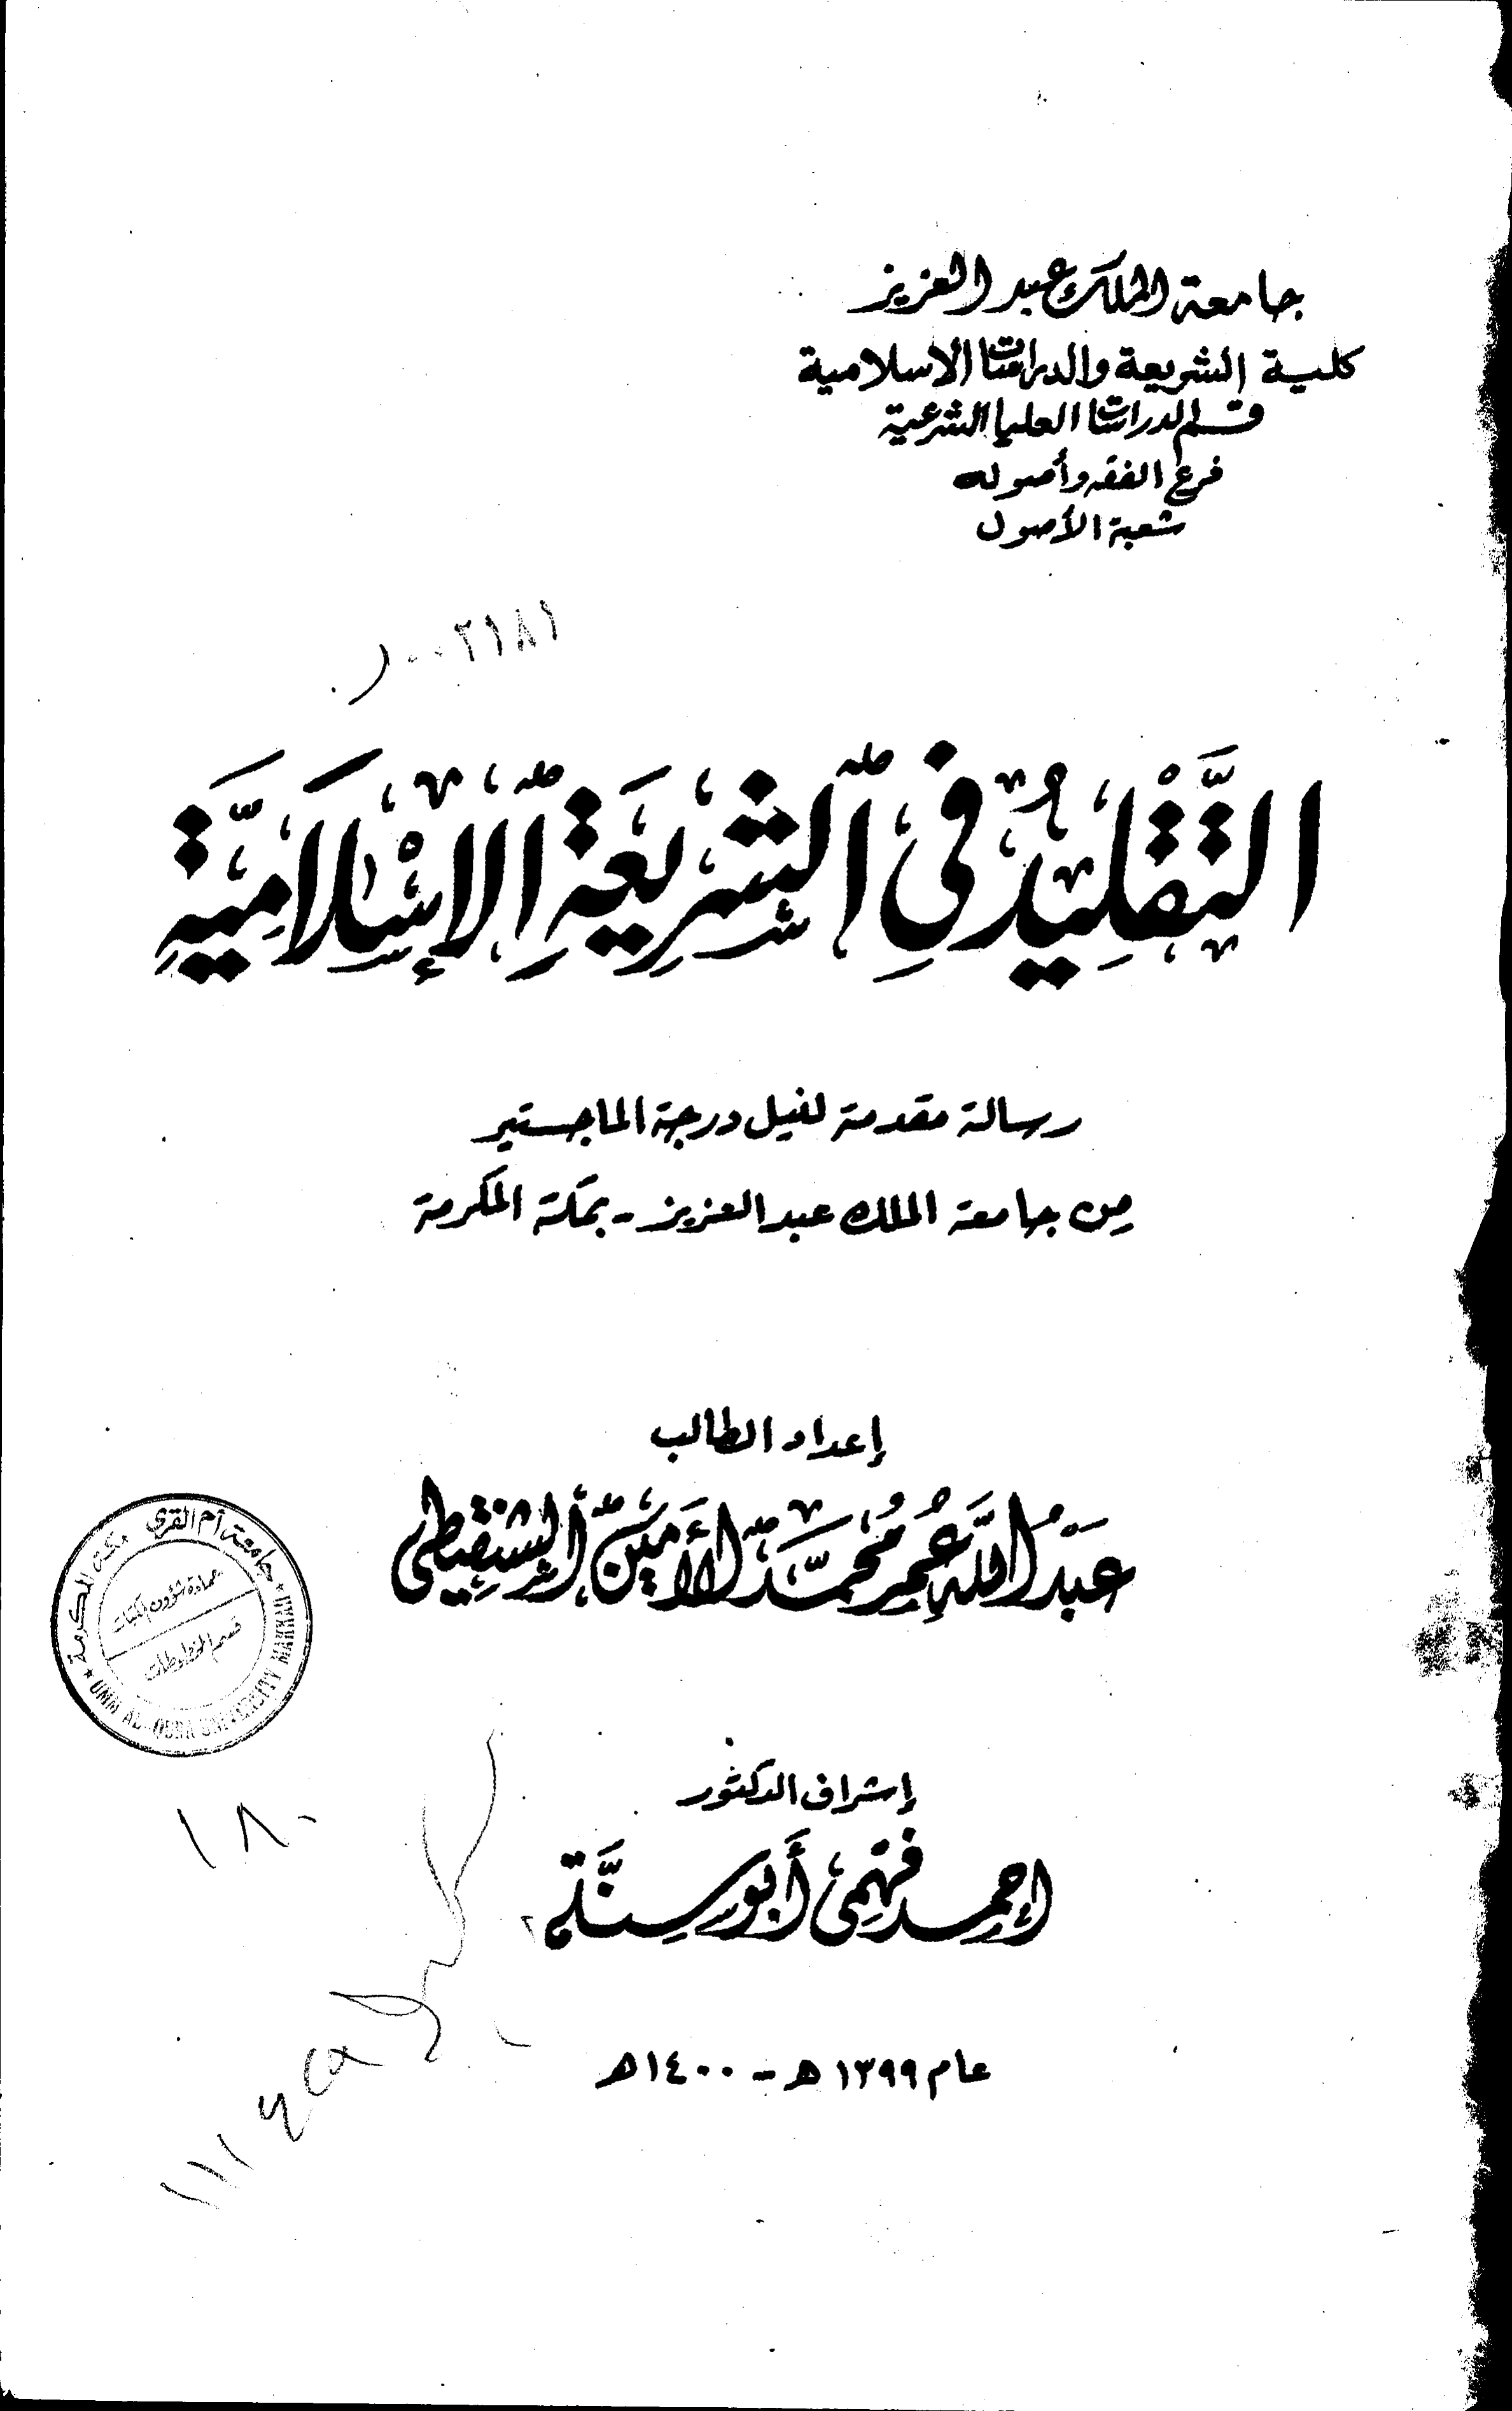 جامعة الملك عبد العزيز
كلية الشريعة والدراسات الاسلامية
قسم الدراسات العليا الشرعية
فرع الفقه وأصوله
شعبة الأصول
٠٠٢١٨١
التَّقْلِيدُ فِي الشَّرِيعَةِ الْإِسْلَامِيَّةِ
رسالة مقدمة لنيل درجة الماجستير
من جامعة الملك عبد العزيز - بمكة المكرمة
إعداد الطالب
عَبْدُ اللهِ عُمَر مُحَمَّد الْأَمِين الشِّنْقِيطِي
جامعة أم القرى مكة المكرمة
عمادة شؤون المكتبات
قسم المخطوطات
UMM AL-QURA UNIVERSITY MAKKAH
إشراف الدكتور
١٨٠
احمد فهمي أبو سنة
عام ١٣٩٩ هـ - ١٤٠٠ هـ